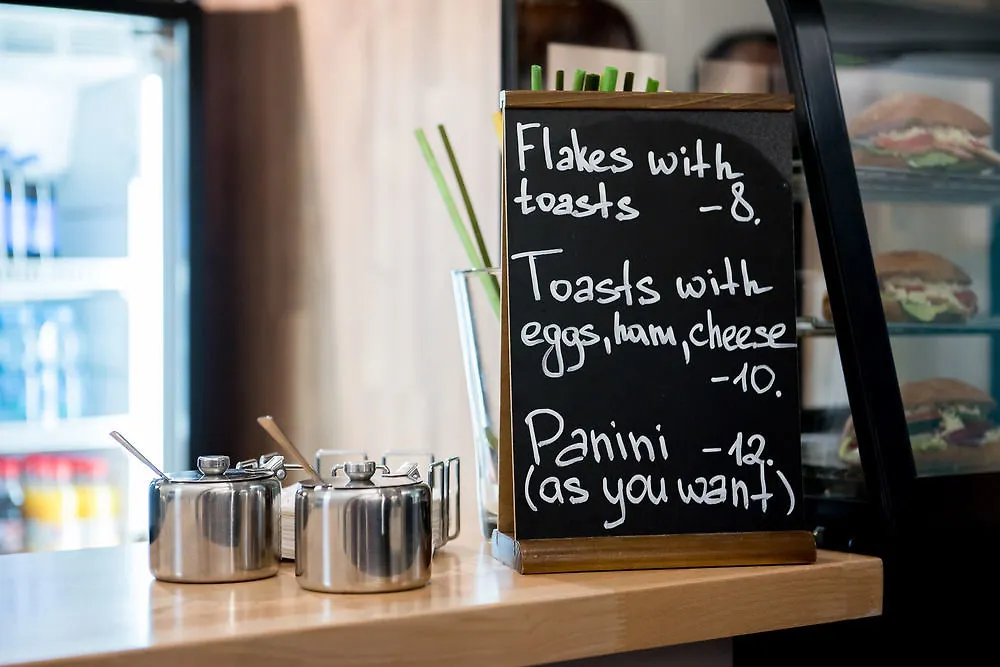 Flakes with
toasts -8.
Toasts with
eggs, ham, cheese
-10.
Panini -12.
(as you want)